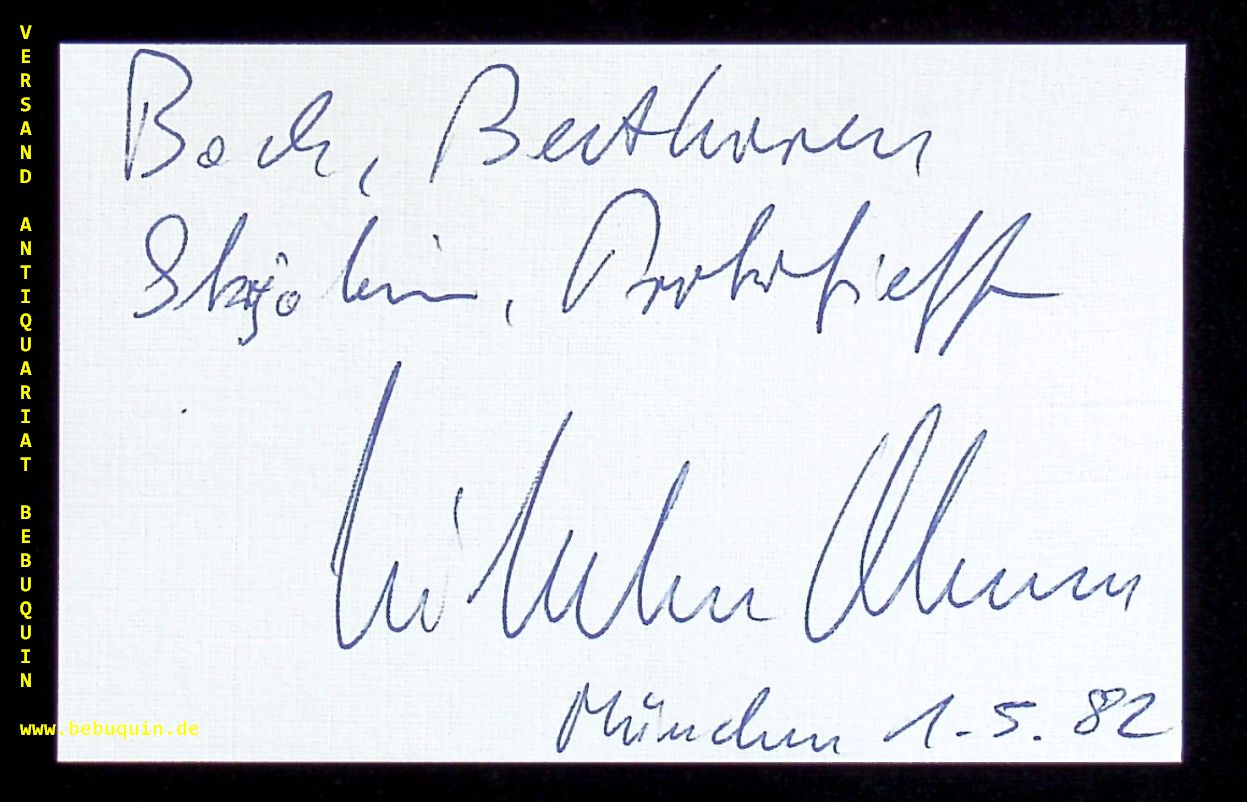 VERSAND ANTIQUARIAT BEBUQUIN
www.bebuquin.de
Bach, Beethoven
Skrjabin, Prokofieff
Wilhelm Ohmen
München 1.5.82